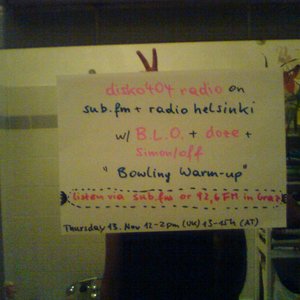 disko404 radio on
sub.fm + radio helsinki
w/ B.L.O. + dote +
simon/off
"Bowling Warm-up"
listen via sub.fm or 92,6 FM in Graz
Thursday 13. Nov 12-2pm (UK) 13-15h (AT)